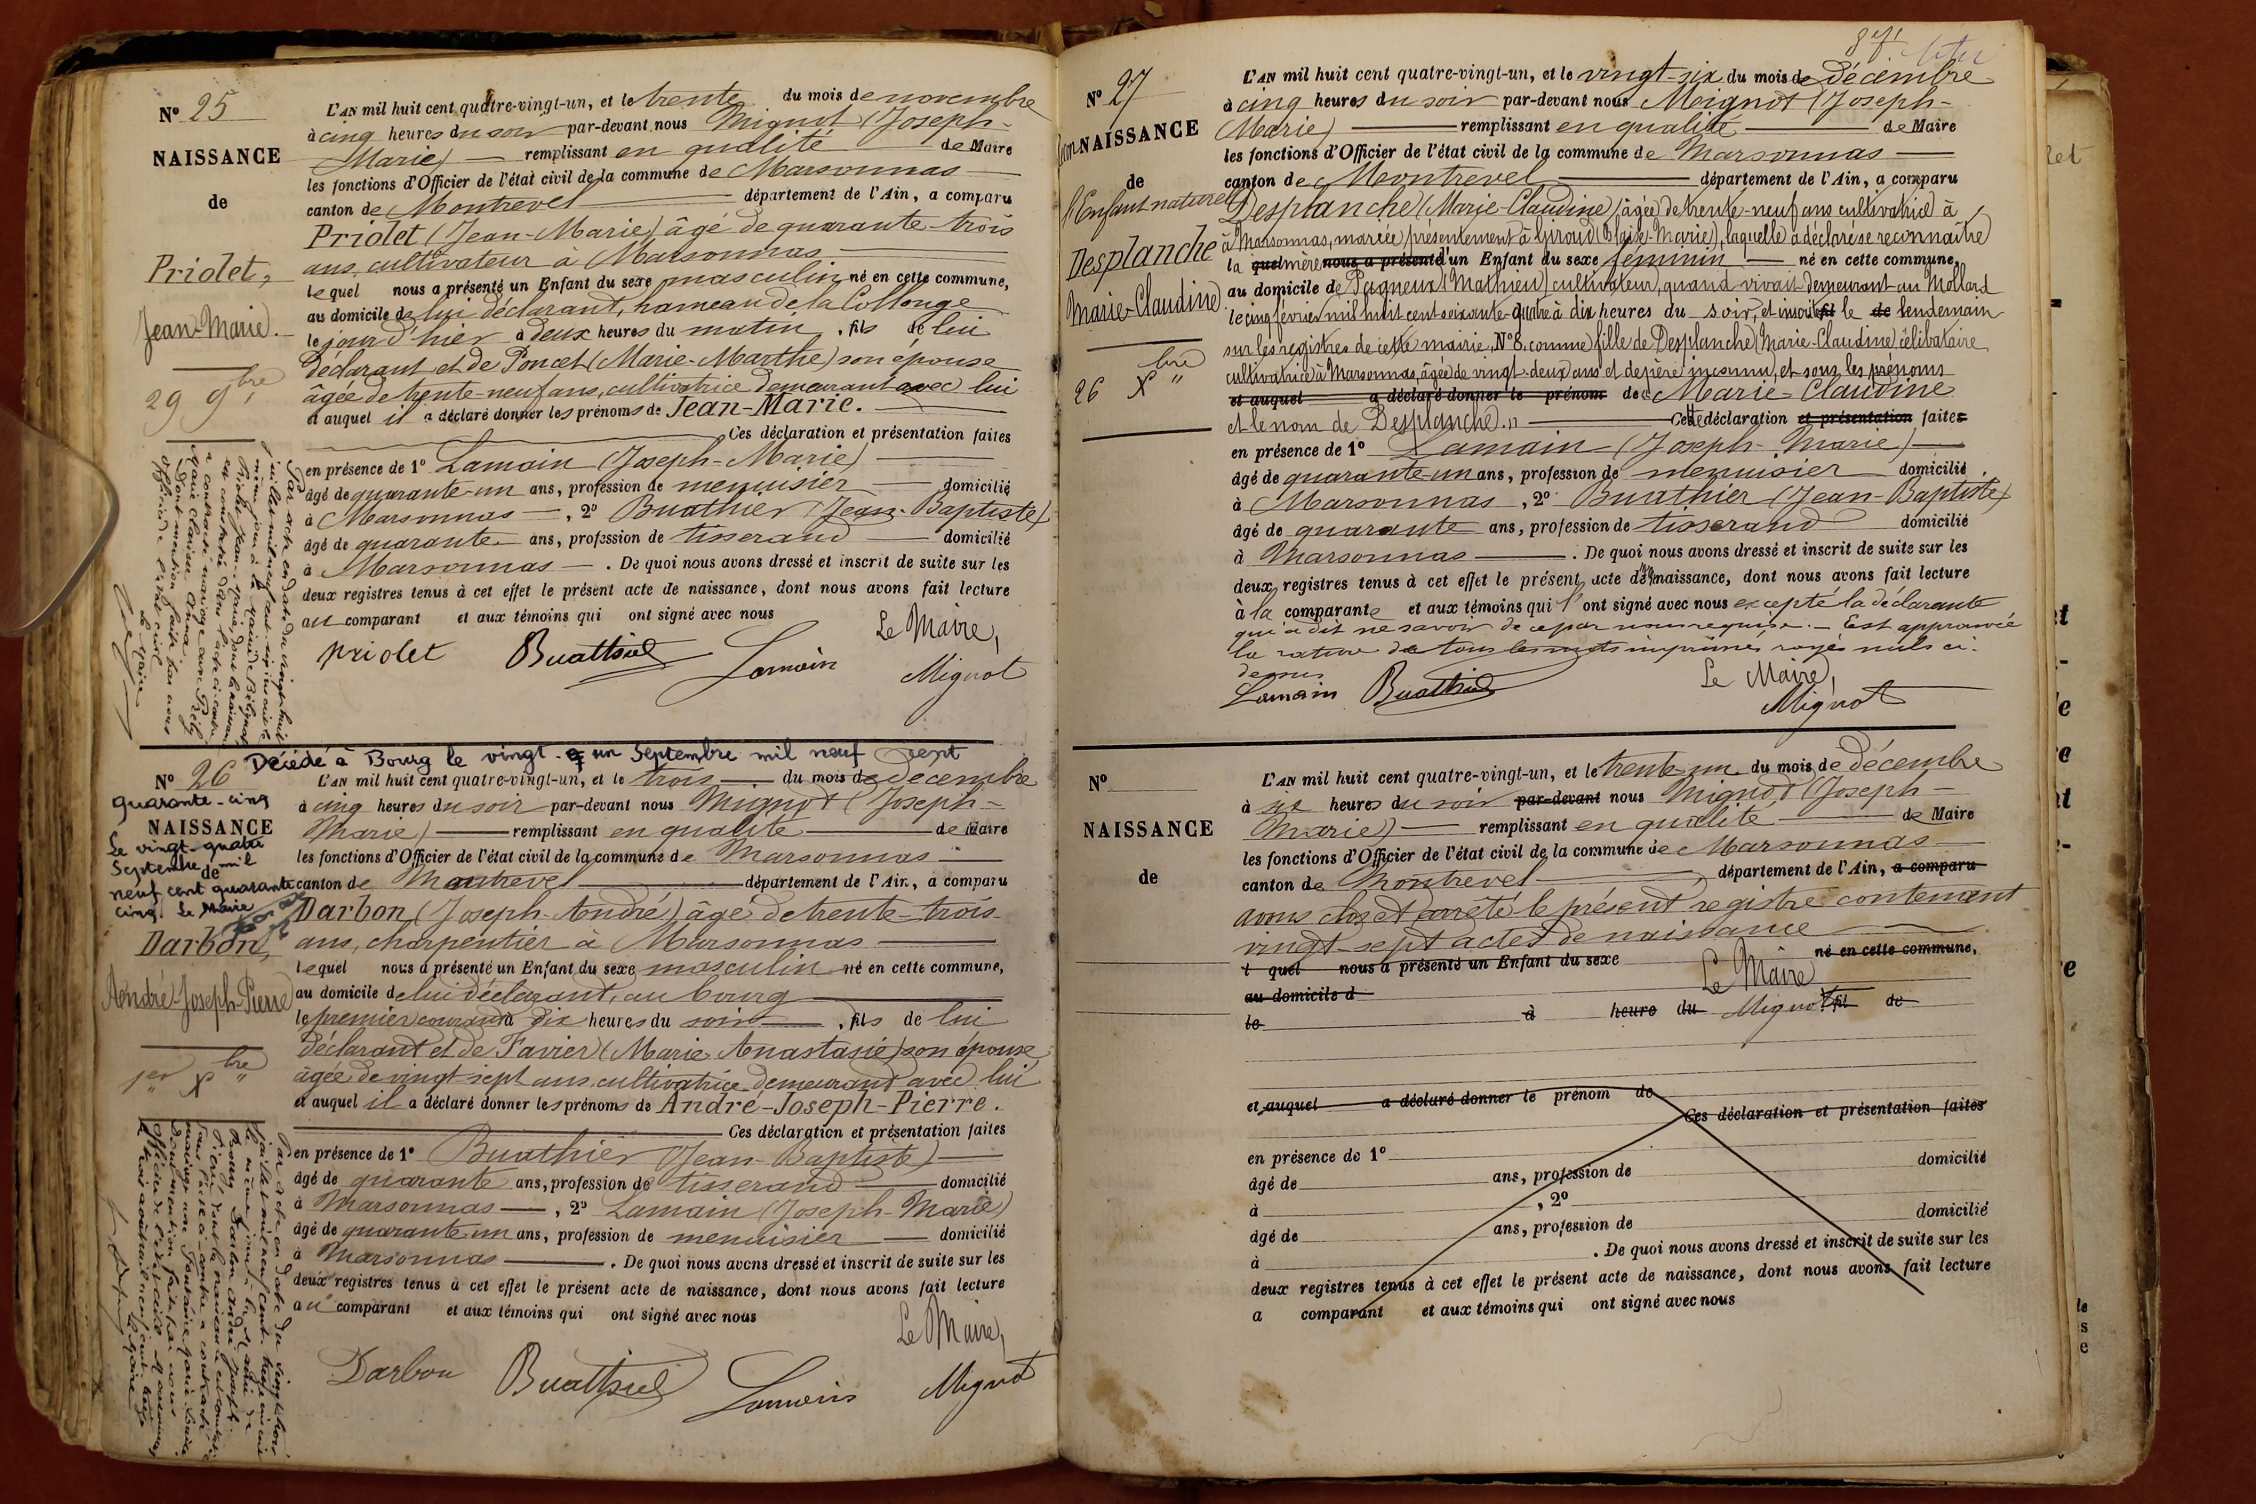 N° 25
NAISSANCE
de
Priolet,
Jean-Marie.
29 9bre
L'AN mil huit cent quatre-vingt-un, et le trente du mois de novembre
à cinq heures du soir par-devant nous Mignot (Joseph-
Marie) remplissant en qualité de Maire
les fonctions d'Officier de l'état civil de la commune de Marsonnas
canton de Montrevel département de l'Ain, a comparu
Priolet (Jean-Marie) âgé de quarante-trois
ans, cultivateur à Marsonnas
lequel nous a présenté un Enfant du sexe masculin né en cette commune,
au domicile de lui déclarant, hameau de la Collonge
le jour d'hier à deux heures du matin, fils de lui
déclarant et de Poncet (Marie-Marthe) son épouse
âgée de trente-neuf ans, cultivatrice demeurant avec lui
et auquel il a déclaré donner les prénoms de Jean-Marie.
Ces déclaration et présentation faites
en présence de 1° Lamain (Joseph-Marie)
âgé de quarante-un ans, profession de menuisier domicilié
à Marsonnas, 2° Buathier (Jean-Baptiste)
âgé de quarante ans, profession de tisserand domicilié
à Marsonnas. De quoi nous avons dressé et inscrit de suite sur les
deux registres tenus à cet effet le présent acte de naissance, dont nous avons fait lecture
au comparant et aux témoins qui ont signé avec nous
Le Maire,
priolet Buathier Lamain Mignot
Par acte en date du vingt huit
même jour à la mairie de
Priolet Jean-Marie, dont la naissance
est constatée dans l'acte ci-contre
a contracté mariage avec
Marie
Dont mention faite par nous
officier de l'état civil
Le Maire
Décédé à Bourg le vingt-un Septembre mil neuf cent
quarante-cinq
Le vingt-quatre
Septembre mil
neuf cent quarante
cinq. Le Maire
N° 26
NAISSANCE
de
Darbon,
André-Joseph-Pierre
1er Xbre
L'AN mil huit cent quatre-vingt-un, et le trois du mois de décembre
à cinq heures du soir par-devant nous Mignot (Joseph-
Marie) remplissant en qualité de Maire
les fonctions d'Officier de l'état civil de la commune de Marsonnas
canton de Montrevel département de l'Ain, a comparu
Darbon (Joseph-André) âgé de trente-trois
ans, charpentier à Marsonnas
lequel nous a présenté un Enfant du sexe masculin né en cette commune,
au domicile de lui déclarant, au bourg
le premier courant à dix heures du soir, fils de lui
déclarant et de Favier (Marie Anastasie) son épouse
âgée de vingt-sept ans, cultivatrice demeurant avec lui
et auquel il a déclaré donner les prénoms de André-Joseph-Pierre.
Ces déclaration et présentation faites
en présence de 1° Buathier (Jean-Baptiste)
âgé de quarante ans, profession de tisserand domicilié
à Marsonnas, 2° Lamain (Joseph-Marie)
âgé de quarante-un ans, profession de menuisier domicilié
à Marsonnas. De quoi nous avons dressé et inscrit de suite sur les
deux registres tenus à cet effet le présent acte de naissance, dont nous avons fait lecture
au comparant et aux témoins qui ont signé avec nous
Le Maire,
Darbon Buathier Lamain Mignot
Par acte en date du vingt
juillet mil neuf cent
le même jour à la mairie de
Bourg, Darbon André Joseph
Pierre, dont la naissance est constatée
dans l'acte ci-contre a contracté
mariage avec Fontaine Marie Louise
Dont mention faite par nous
officier de l'état civil à Marsonnas
le trois août mil neuf cent
Le Maire
N° 27
NAISSANCE
de
l'Enfant naturel
Desplanche
Marie-Claudine
26 Xbre
L'AN mil huit cent quatre-vingt-un, et le vingt-six du mois de décembre
à cinq heures du soir par-devant nous Mignot (Joseph-
Marie) remplissant en qualité de Maire
les fonctions d'Officier de l'état civil de la commune de Marsonnas
canton de Montrevel département de l'Ain, a comparu
Desplanche (Marie-Claudine) âgée de trente-neuf ans cultivatrice à
à Marsonnas, mariée présentement à Giroud (Blaise-Marie), laquelle a déclaré se reconnaître
la quel mère nous a présenté d'un Enfant du sexe féminin né en cette commune,
au domicile de Pagneux (Mathieu) cultivateur, quand vivait demeurant au Mollard
le cinq février mil huit cent soixante-quatre à dix heures du soir, et inscrit fil le de lendemain
sur les registres de cette mairie, N° 8. comme fille de Desplanche (Marie-Claudine) célibataire
cultivatrice à Marsonnas, âgée de vingt-deux ans et de père inconnu, et sous les prénoms
et auquel a déclaré donner le prénom de Marie-Claudine
et le nom de Desplanche. Cette déclaration et présentation faites
en présence de 1° Lamain (Joseph-Marie)
âgé de quarante-un ans, profession de menuisier domicilié
à Marsonnas, 2° Buathier (Jean-Baptiste)
âgé de quarante ans, profession de tisserand domicilié
à Marsonnas. De quoi nous avons dressé et inscrit de suite sur les
deux registres tenus à cet effet le présent acte de naissance, dont nous avons fait lecture
à la comparante et aux témoins qui l'ont signé avec nous excepté la déclarante
qui a dit ne savoir de ce par nous requise. — Est approuvée
la rature de tous les mots imprimés rayés nuls ci-
dessus
Le Maire,
Lamain Buathier Mignot
N°
NAISSANCE
de
L'AN mil huit cent quatre-vingt-un, et le trente-un du mois de décembre
à six heures du soir par-devant nous Mignot (Joseph-
Marie) remplissant en qualité de Maire
les fonctions d'Officier de l'état civil de la commune de Marsonnas
canton de Montrevel département de l'Ain, a comparu
avons clos et arrêté le présent registre contenant
vingt-sept actes de naissance
l quel nous a présenté un Enfant du sexe né en cette commune,
Le Maire
au domicile d
le à heure du Mignot fil de
et auquel a déclaré donner le prénom de
Ces déclaration et présentation faites
en présence de 1°
âgé de ans, profession de domicilié
à , 2°
âgé de ans, profession de domicilié
à . De quoi nous avons dressé et inscrit de suite sur les
deux registres tenus à cet effet le présent acte de naissance, dont nous avons fait lecture
a comparant et aux témoins qui ont signé avec nous